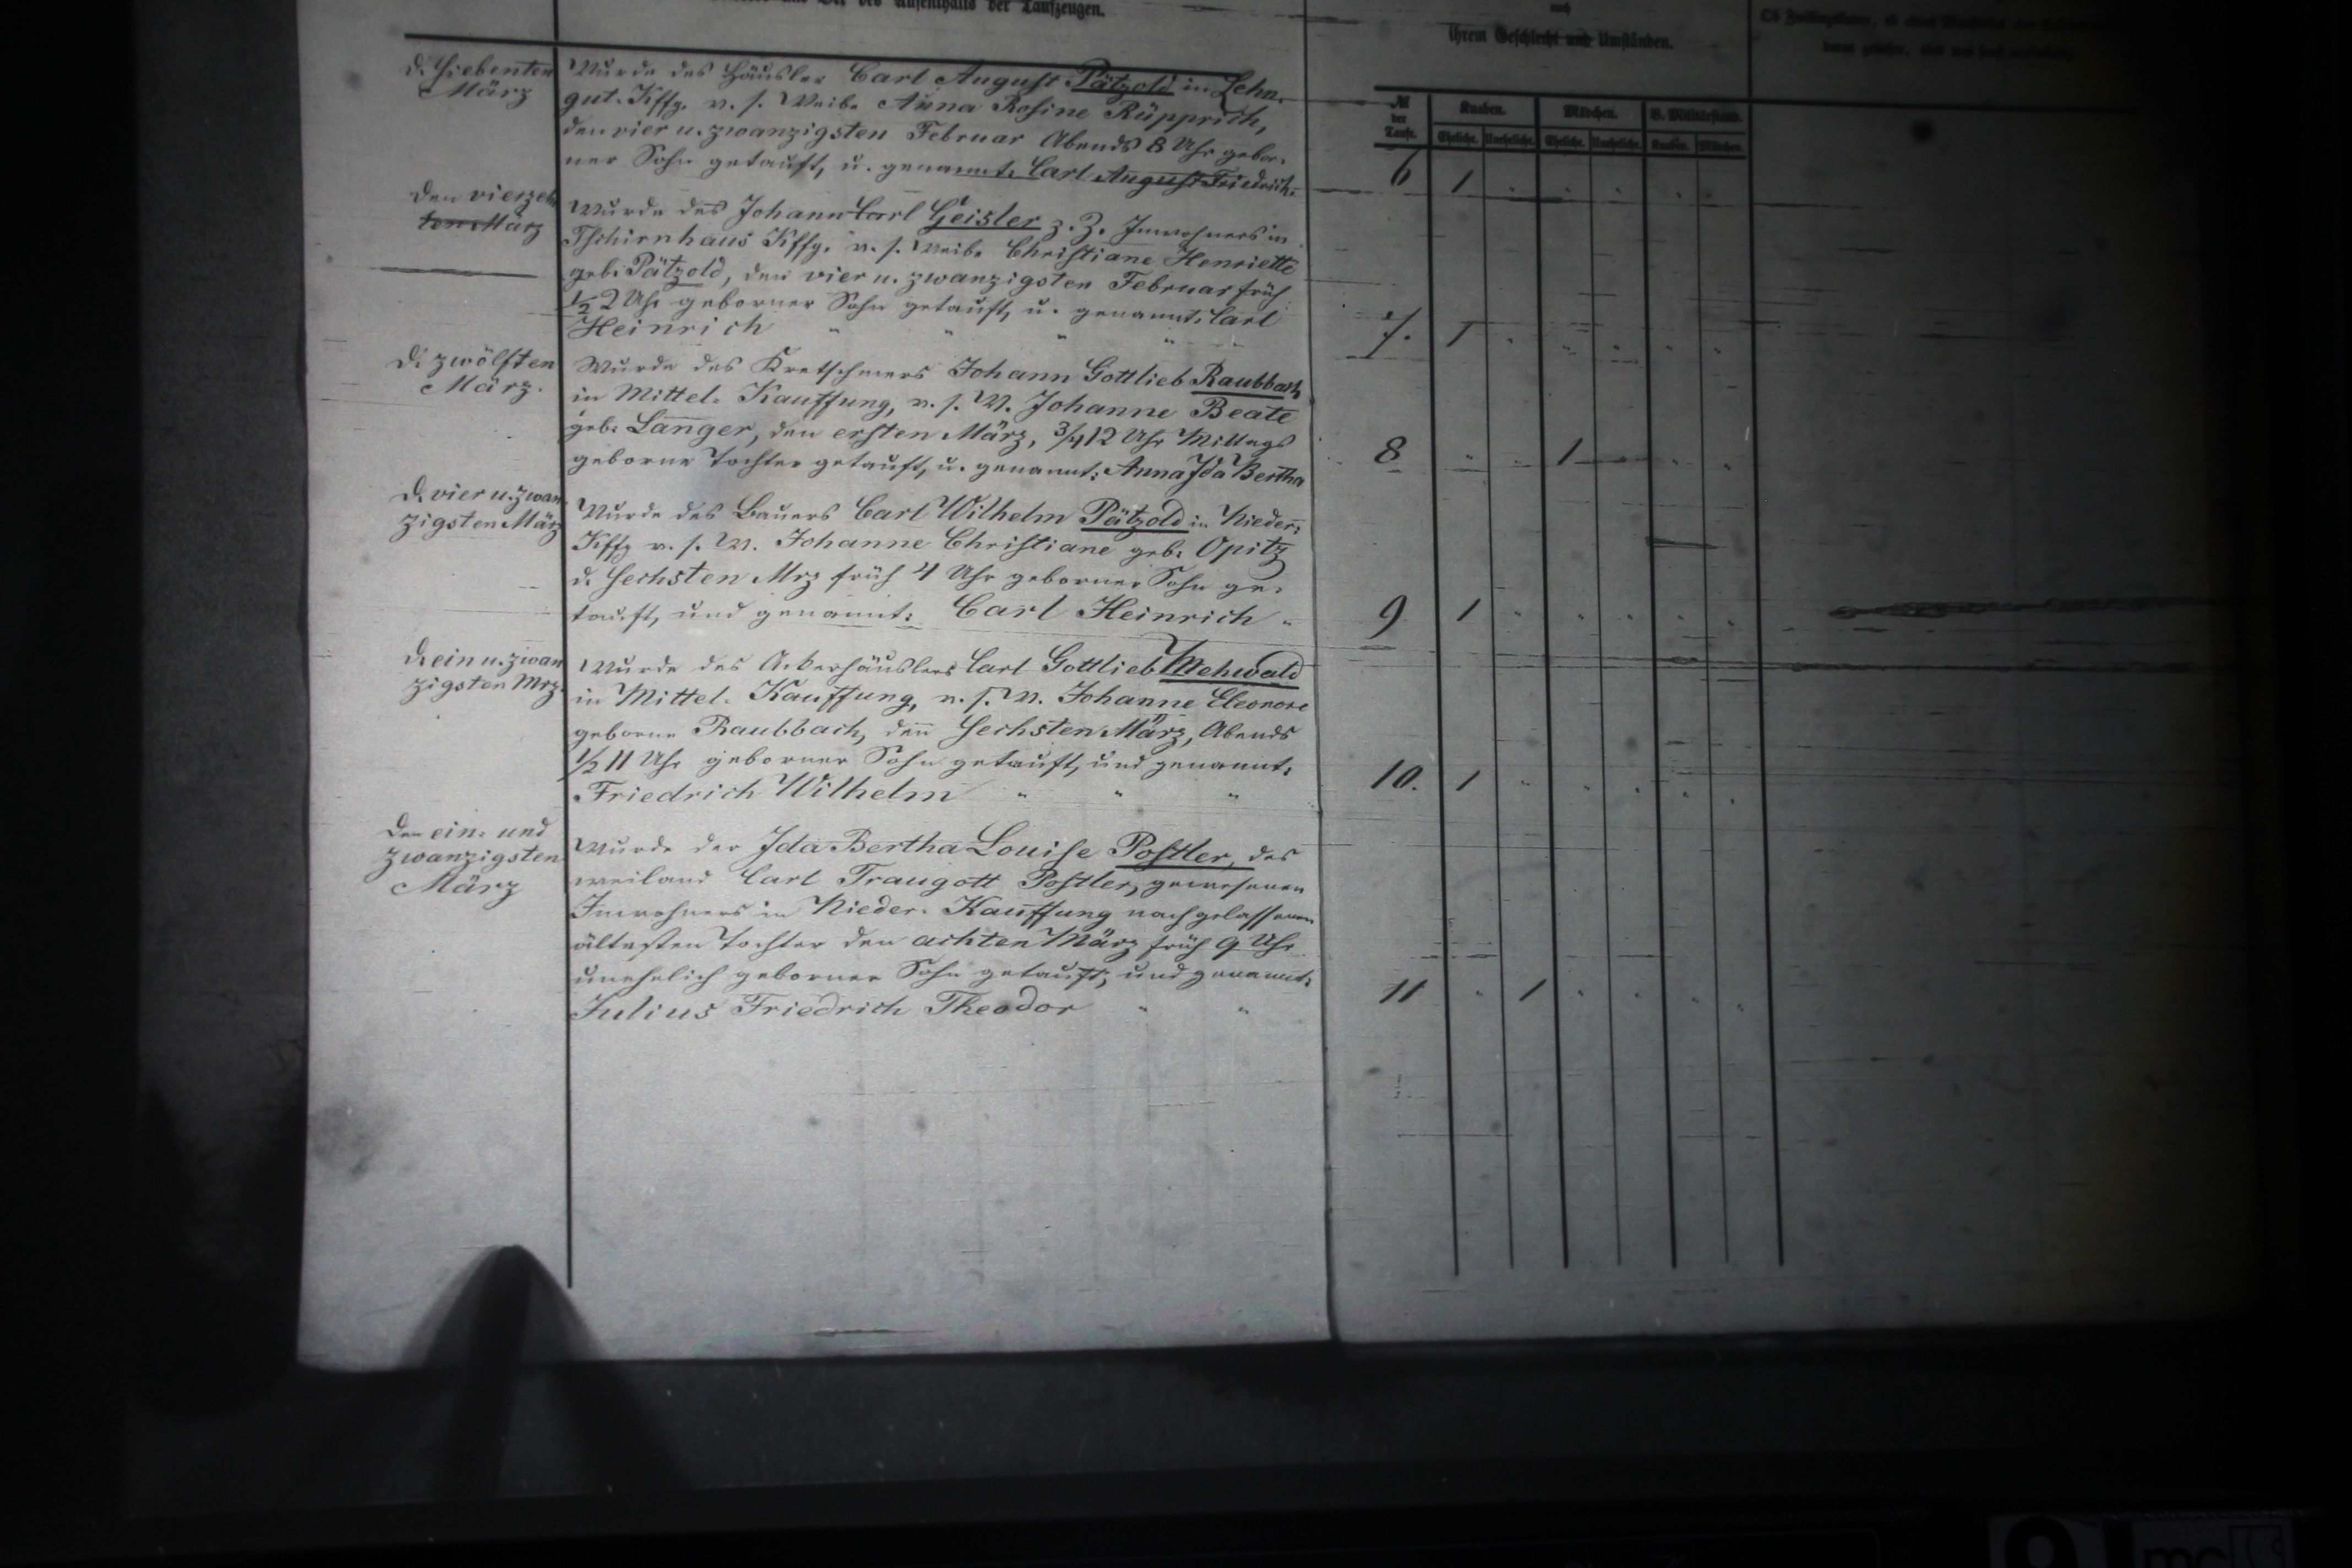 und Ort des Aufenthalts der Taufzeugen.
nach
ihrem Geschlecht und Umständen.
№ der Taufe.
Knaben.
Mädchen.
B. Militärstande.
Eheliche. Uneheliche. Eheliche. Uneheliche. Knaben. Mädchen.
d. siebenten
März
Wurde des Häusler Carl August Pätzold in Lehn-
gut-Kffg. v. s. Weibe Anna Rosine Rüpprich,
den vier u. zwanzigsten Februar Abends 8 Uhr gebor-
ner Sohn getauft, u. genannt: Carl August Friedrich.
6 1
den vierzehn
ten März
Wurde des Johann Carl Geisler z. Z. Inwohners in
Tschirnhaus Kffg. v. s. Weibe Christiane Henriette
geb. Pätzold, den vier u. zwanzigsten Februar früh
1/2 2 Uhr geborner Sohn getauft, u. genannt: Carl
Heinrich " " " " "
7. 1
d. zwölften
März.
Wurde des Kretschmers Johann Gottlieb Raubbach
in Mittel-Kauffung, v. s. W. Johanne Beate
geb. Langer, den ersten März, 3/4 12 Uhr Mittags
geborne Tochter getauft, u. genannt: Anna Ida Bertha
8 1
d. vier u. zwan
zigsten März
Wurde des Bauers Carl Wilhelm Pätzold in Nieder-
Kffg v. s. W. Johanne Christiane geb. Opitz
d. sechsten Mrz früh 4 Uhr geborner Sohn ge-
tauft, und genannt: Carl Heinrich "
9 1
d. ein u. zwan
zigsten Mrz.
Wurde des Ackerhäuslers Carl Gottlieb Mehwald
in Mittel-Kauffung, v. s. W. Johanne Eleonore
geborne Raubbach, den sechsten März, Abends
1/2 11 Uhr geborner Sohn getauft, und genannt:
Friedrich Wilhelm " " "
10. 1
Den ein- und
zwanzigsten
März
Wurde der Ida Bertha Louise Postler, des
weiland Carl Traugott Postler, gewesenen
Inwohners in Nieder-Kauffung nachgelassenen
ältesten Tochter den achten März früh 9 Uhr
unehelich geborner Sohn getauft, und genannt:
Julius Friedrich Theodor " "
11 1